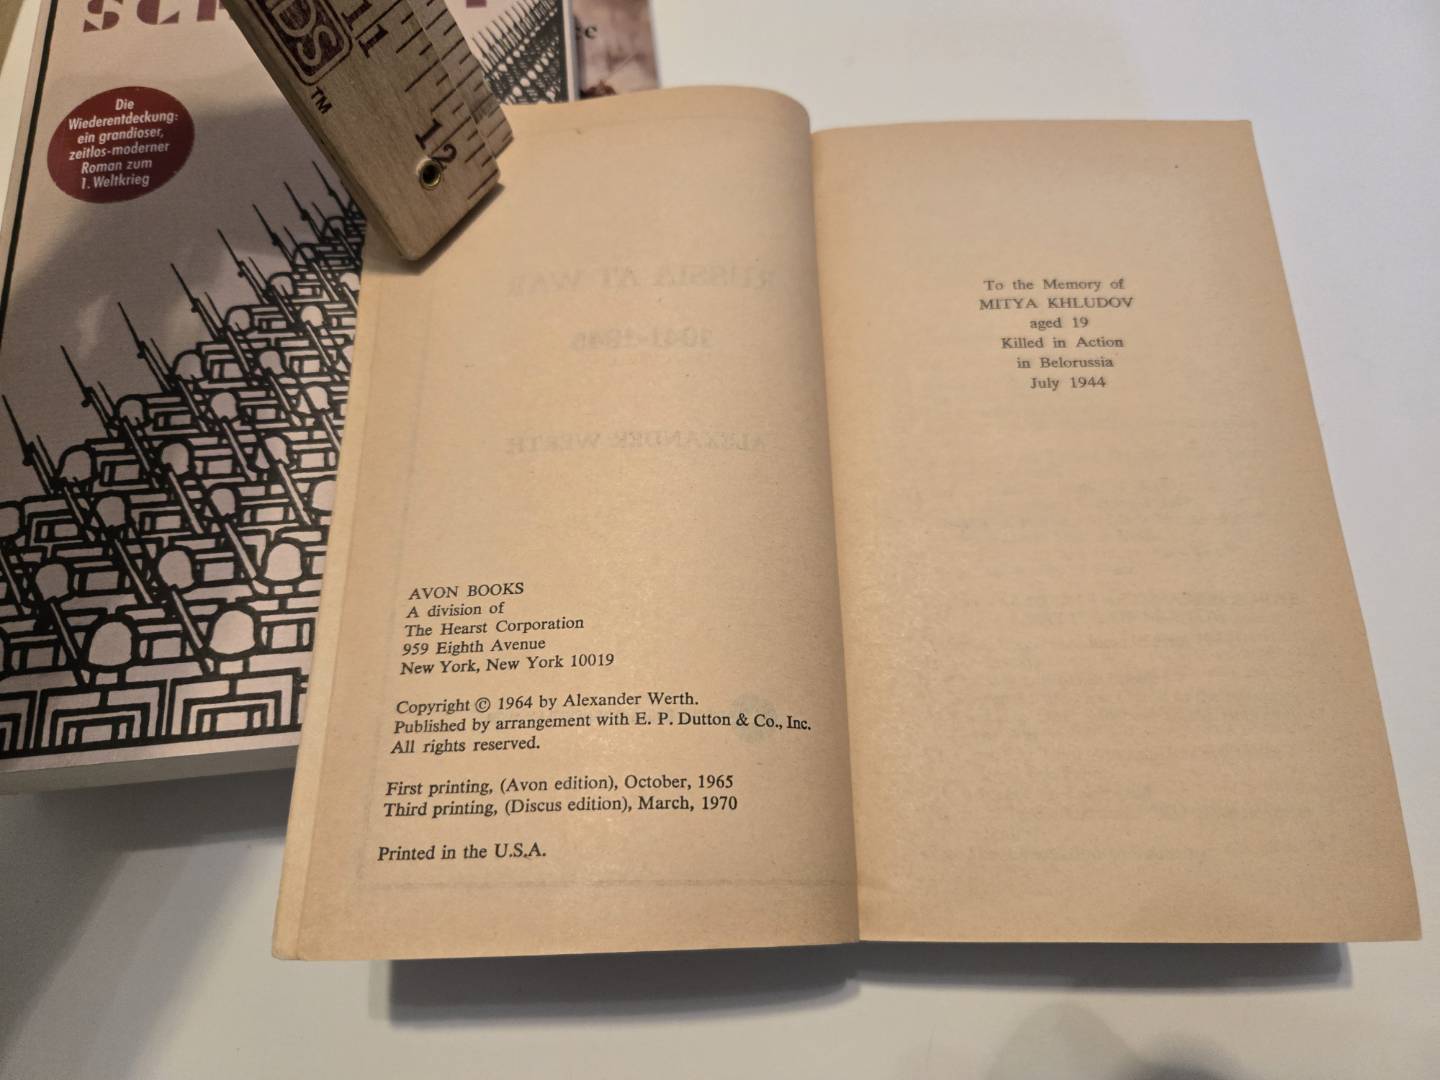 Die
Wiederentdeckung:
ein grandioser,
zeitlos-moderner
Roman zum
1. Weltkrieg
11
12
™
RUSSIA AT WAR
1941-1945
ALEXANDER WERTH
AVON BOOKS
A division of
The Hearst Corporation
959 Eighth Avenue
New York, New York 10019
Copyright © 1964 by Alexander Werth.
Published by arrangement with E. P. Dutton & Co., Inc.
All rights reserved.
First printing, (Avon edition), October, 1965
Third printing, (Discus edition), March, 1970
Printed in the U.S.A.
To the Memory of
MITYA KHLUDOV
aged 19
Killed in Action
in Belorussia
July 1944